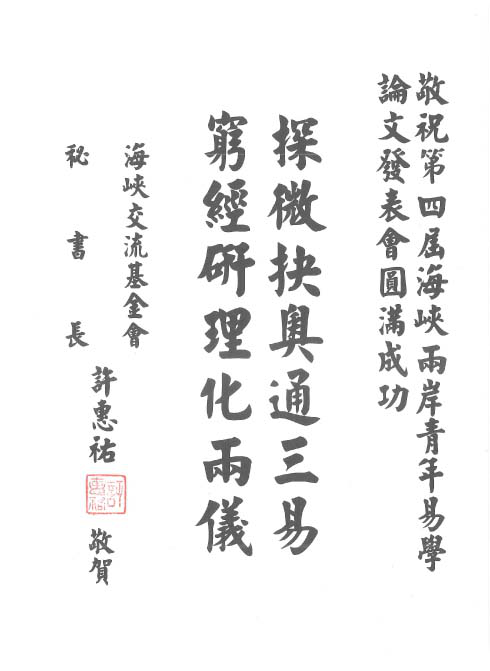 敬祝第四屆海峽兩岸青年易學
論文發表會圓滿成功
探微抉奧通三易
窮經研理化兩儀
海峽交流基金會
秘書長
許惠祐
許惠祐
敬賀